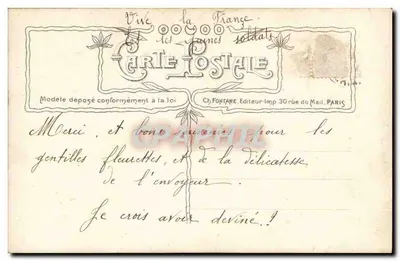 Vive la France
et les jeunes soldats
CARTE POSTALE
Modèle déposé conformément à la loi
Ch. FONTANE, Editeur-Imp 30 rue du Mail, PARIS
CPRPHOTO
Merci, et bons pour les
gentilles fleurettes, et de la délicatesse
de l'envoyeur.
Je crois avoir deviné !